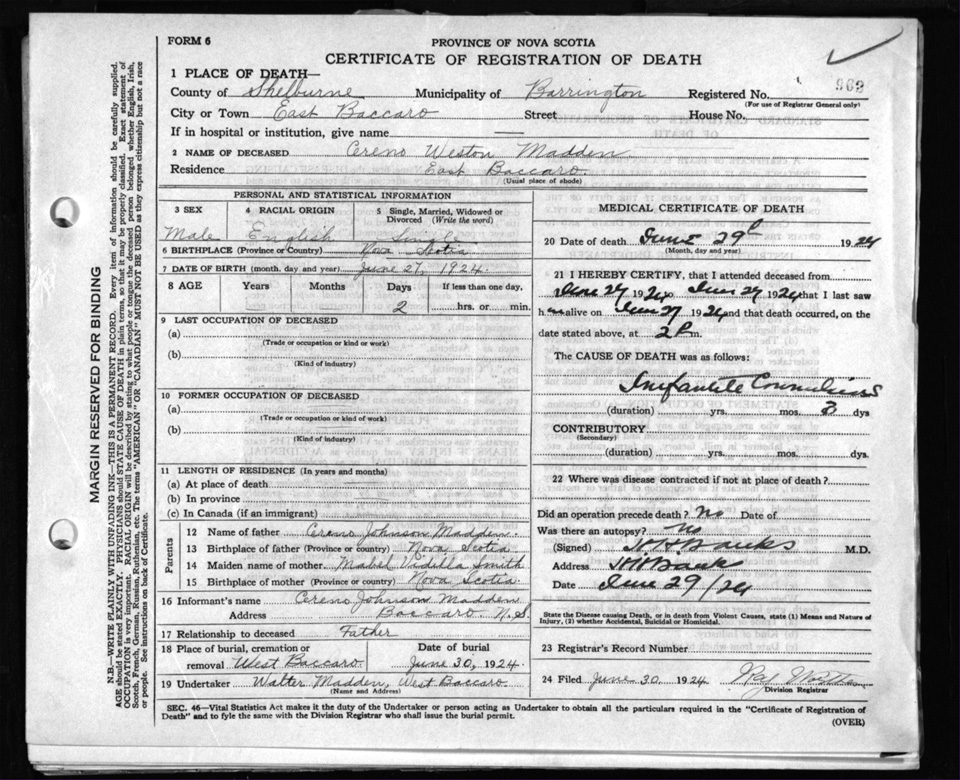 FORM 6
PROVINCE OF NOVA SCOTIA
CERTIFICATE OF REGISTRATION OF DEATH
1 PLACE OF DEATH—
County of Shelburne Municipality of Barrington Registered No. 962
(For use of Registrar General only)
City or Town East Baccaro Street House No.
If in hospital or institution, give name —
2 NAME OF DECEASED Cereno Weston Madden
Residence East Baccaro
(Usual place of abode)
PERSONAL AND STATISTICAL INFORMATION
3 SEX 4 RACIAL ORIGIN 5 Single, Married, Widowed or Divorced (Write the word)
Male English Single
6 BIRTHPLACE (Province or Country) Nova Scotia
7 DATE OF BIRTH (month, day and year) June 27, 1924.
8 AGE Years Months Days If less than one day,
— — 2 hrs. or min.
9 LAST OCCUPATION OF DECEASED
(a)
(Trade or occupation or kind of work)
(b)
(Kind of industry)
10 FORMER OCCUPATION OF DECEASED
(a)
(Trade or occupation or kind of work)
(b)
(Kind of industry)
11 LENGTH OF RESIDENCE (In years and months)
(a) At place of death
(b) In province
(c) In Canada (if an immigrant)
Parents
12 Name of father Cereno Johnson Madden.
13 Birthplace of father (Province or country) Nova Scotia
14 Maiden name of mother Mabel Vidilla Smith
15 Birthplace of mother (Province or country) Nova Scotia.
16 Informant's name Cereno Johnson Madden
Address Baccaro N.S.
17 Relationship to deceased Father
18 Place of burial, cremation or removal West Baccaro Date of burial June 30, 1924.
19 Undertaker Walter Madden, West Baccaro
(Name and Address)
MEDICAL CERTIFICATE OF DEATH
20 Date of death June 29 1924
(Month, day and year)
21 I HEREBY CERTIFY, that I attended deceased from
June 27 1924 to June 27 1924 that I last saw
him alive on June 27 1924 and that death occurred, on the
date stated above, at 2 P m.
The CAUSE OF DEATH was as follows:
Infantile Convulsions
(duration) yrs. mos. dys
CONTRIBUTORY
(Secondary)
(duration) yrs. mos. dys.
22 Where was disease contracted if not at place of death?
Did an operation precede death? No Date of
Was there an autopsy? No
(Signed) Banks M.D.
Address
Date June 29/24
State the Disease causing Death, or in death from Violent Causes, state (1) Means and Nature of
Injury, (2) whether Accidental, Suicidal or Homicidal.
23 Registrar's Record Number
24 Filed June 30, 1924
Division Registrar
SEC. 46—Vital Statistics Act makes it the duty of the Undertaker or person acting as Undertaker to obtain all the particulars required in the "Certificate of Registration of
Death" and to fyle the same with the Division Registrar who shall issue the burial permit.
(OVER)
MARGIN RESERVED FOR BINDING
N.B.—WRITE PLAINLY WITH UNFADING INK—THIS IS A PERMANENT RECORD. Every item of information should be carefully supplied.
AGE should be stated EXACTLY. PHYSICIANS should STATE CAUSE OF DEATH in plain terms, so that it may be properly classified. Exact statement of
OCCUPATION is very important. RACIAL ORIGIN will be described by stating to what people or tongue the deceased person belonged whether English, Irish,
Scotch, French, German, Russian, Ruthenian, etc. The terms "AMERICAN" OR "CANADIAN" MUST NOT BE USED as they express citizenship but not a race
or people. See instructions on back of Certificate.